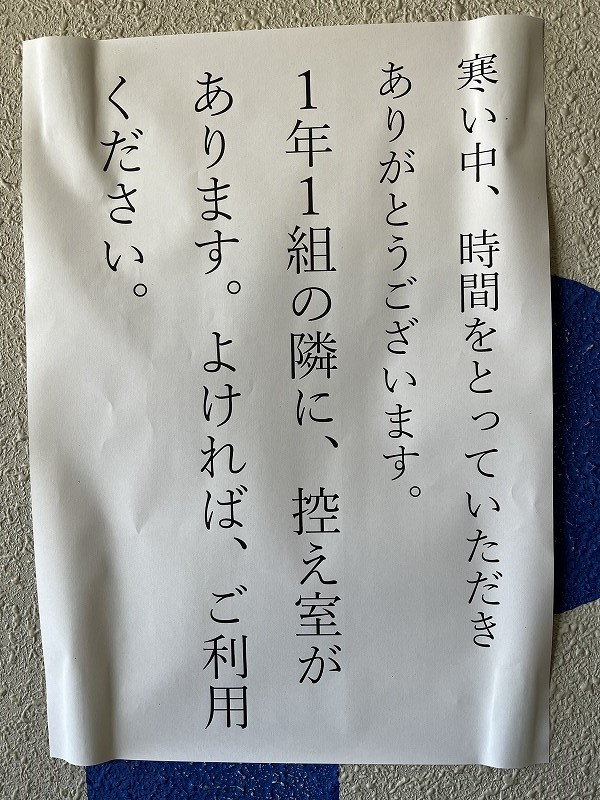 寒い中、時間をとっていただき
ありがとうございます。
1年1組の隣に、控え室が
あります。よければ、ご利用
ください。